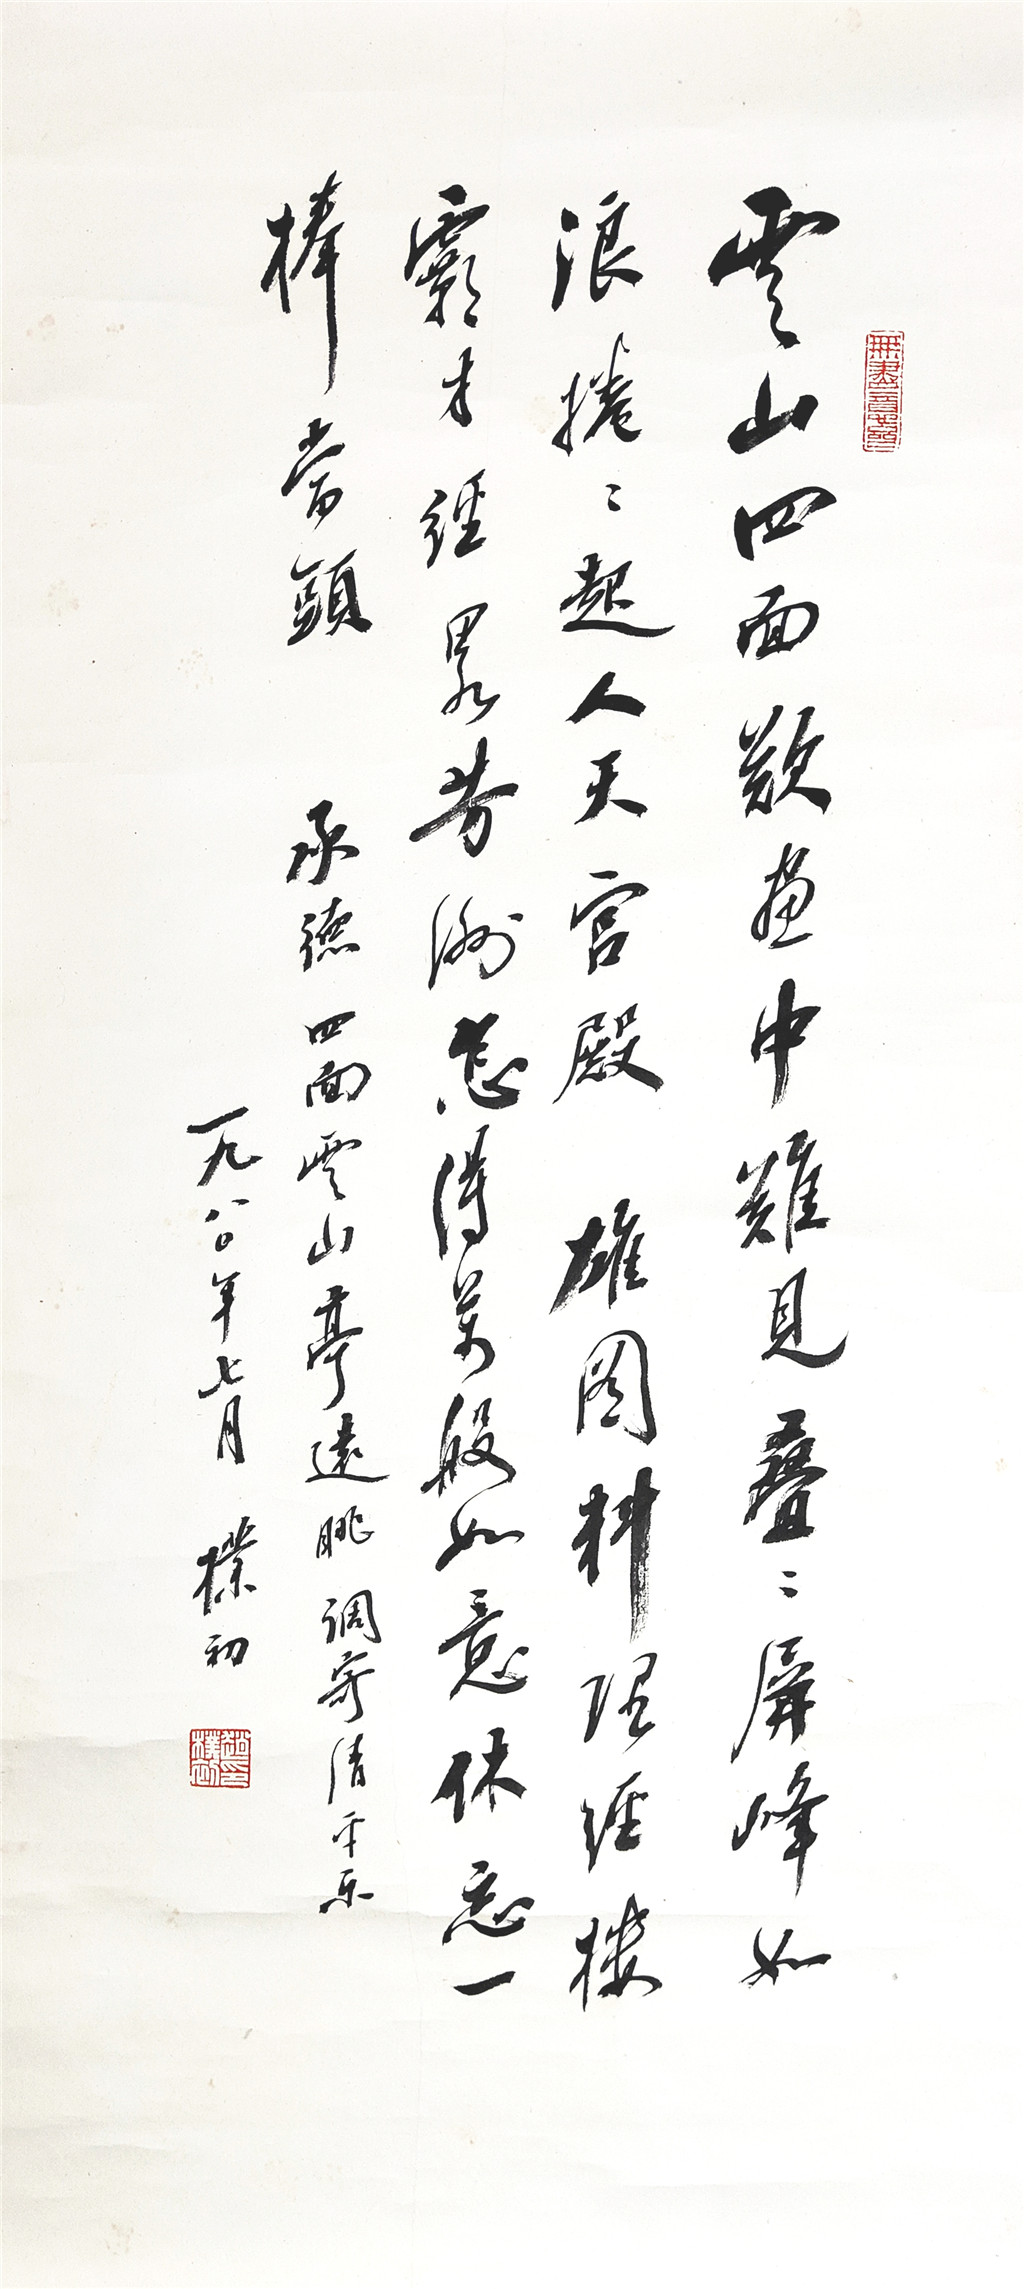 無盡意齋
雲山四面歎畫中難見疊〻屏峰如
浪捲〻起人天宮殿 雄圖料理經樓
霸才經畧芳洲怎得萬般如意休忘一
棒當頭 承德四面雲山亭遠眺調寄清平樂
一九八〇年七月 樸初
趙印樸初